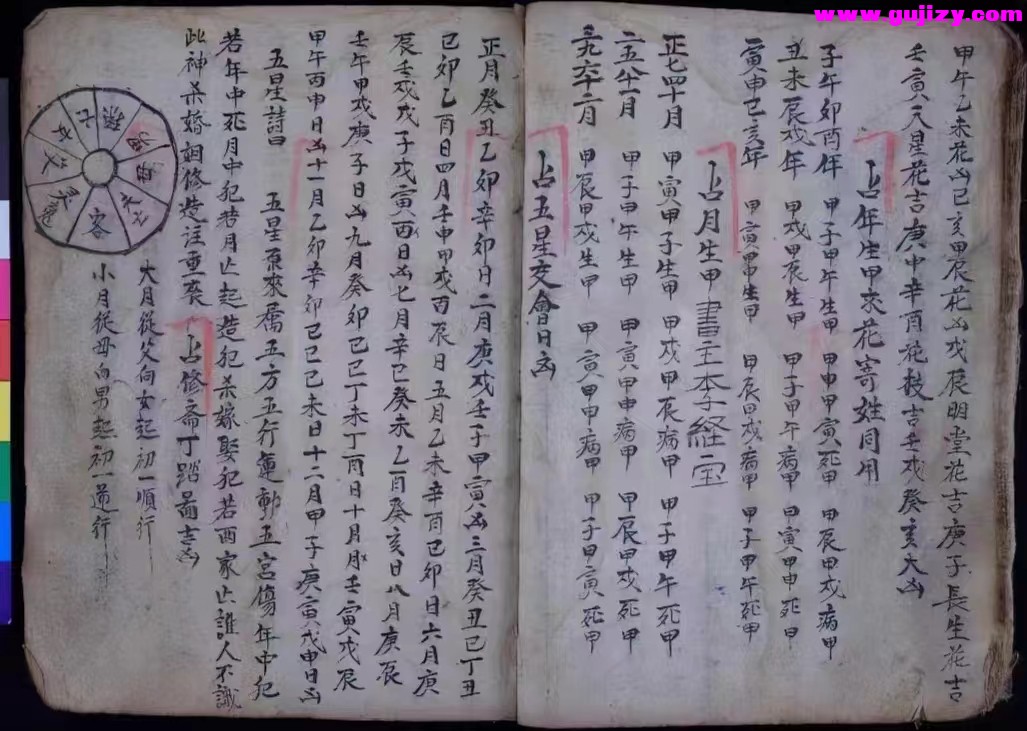 www.gujizy.com
甲午乙未花凶己亥甲辰花凶戊辰明堂花吉庚子長生花吉
壬寅天星花吉庚申辛酉花枝吉壬戌癸亥大凶
占年生甲求花寄姓同用
子午卯酉年 甲子甲午生甲 甲申甲寅死甲 甲辰甲戌病甲
丑未辰戌年 甲戌甲辰生甲 甲子甲午病甲 甲寅甲申死甲
寅申巳亥年 甲寅甲申生甲 甲辰甲戌病甲 甲子甲午死甲
占月生甲 書主李経宝
正七四十月 甲寅甲子生甲 甲戌甲辰病甲 甲子甲午死甲
二五八十一月 甲子甲午生甲 甲寅甲申病甲 甲辰甲戌死甲
三九六十二月 甲辰甲戌生甲 甲寅甲申病甲 甲子甲寅死甲
占五星交會日凶
正月癸丑乙卯辛卯日二月庚戌壬子甲寅凶三月癸丑己丁丑
己卯乙酉日四月壬申甲戌酉辰日五月乙未辛酉己卯日六月庚
辰壬戌戊子戌寅酉日凶七月辛巳癸未乙酉癸亥日八月庚辰
壬午甲戌庚子日凶九月癸卯己巳丁未丁酉日十月壬寅戊辰
甲午丙申日凶十一月乙卯辛卯己巳己未日十二月甲子庚寅戊申日凶
五星詩曰 五星原來喬五方五行運動五宮傷年中犯
若年中死月中犯若月亡起造犯杀嫁娶犯若西家亡誰人不識
此神杀婚姻修造注重喪 占修斋丁踏啚吉凶
大月從父向女起初一順行
小月從母向男起初一逆行
客